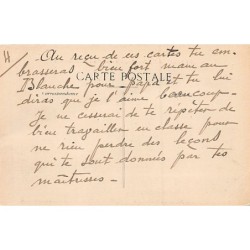 H
Au reçu de ces cartes tu em-
brasseras bien fort maman
CARTE POSTALE
Blanche pour papa et tu lui
diras que je l'aime beaucoup -
Je ne cesserai de te répéter de
bien travailler en classe pour
ne rien perdre des leçons
qui te sont données par tes
maîtresses -